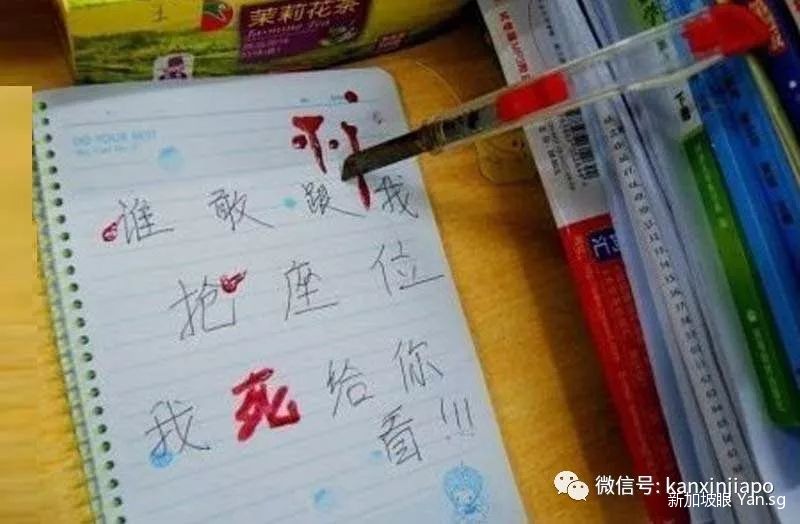 茉莉花茶
Jasmine Tea
DO YOUR BEST
谁敢跟我
抢座位
我死给你
看!!!
微信号: kanxinjiapo
新加坡眼 Yan.sg